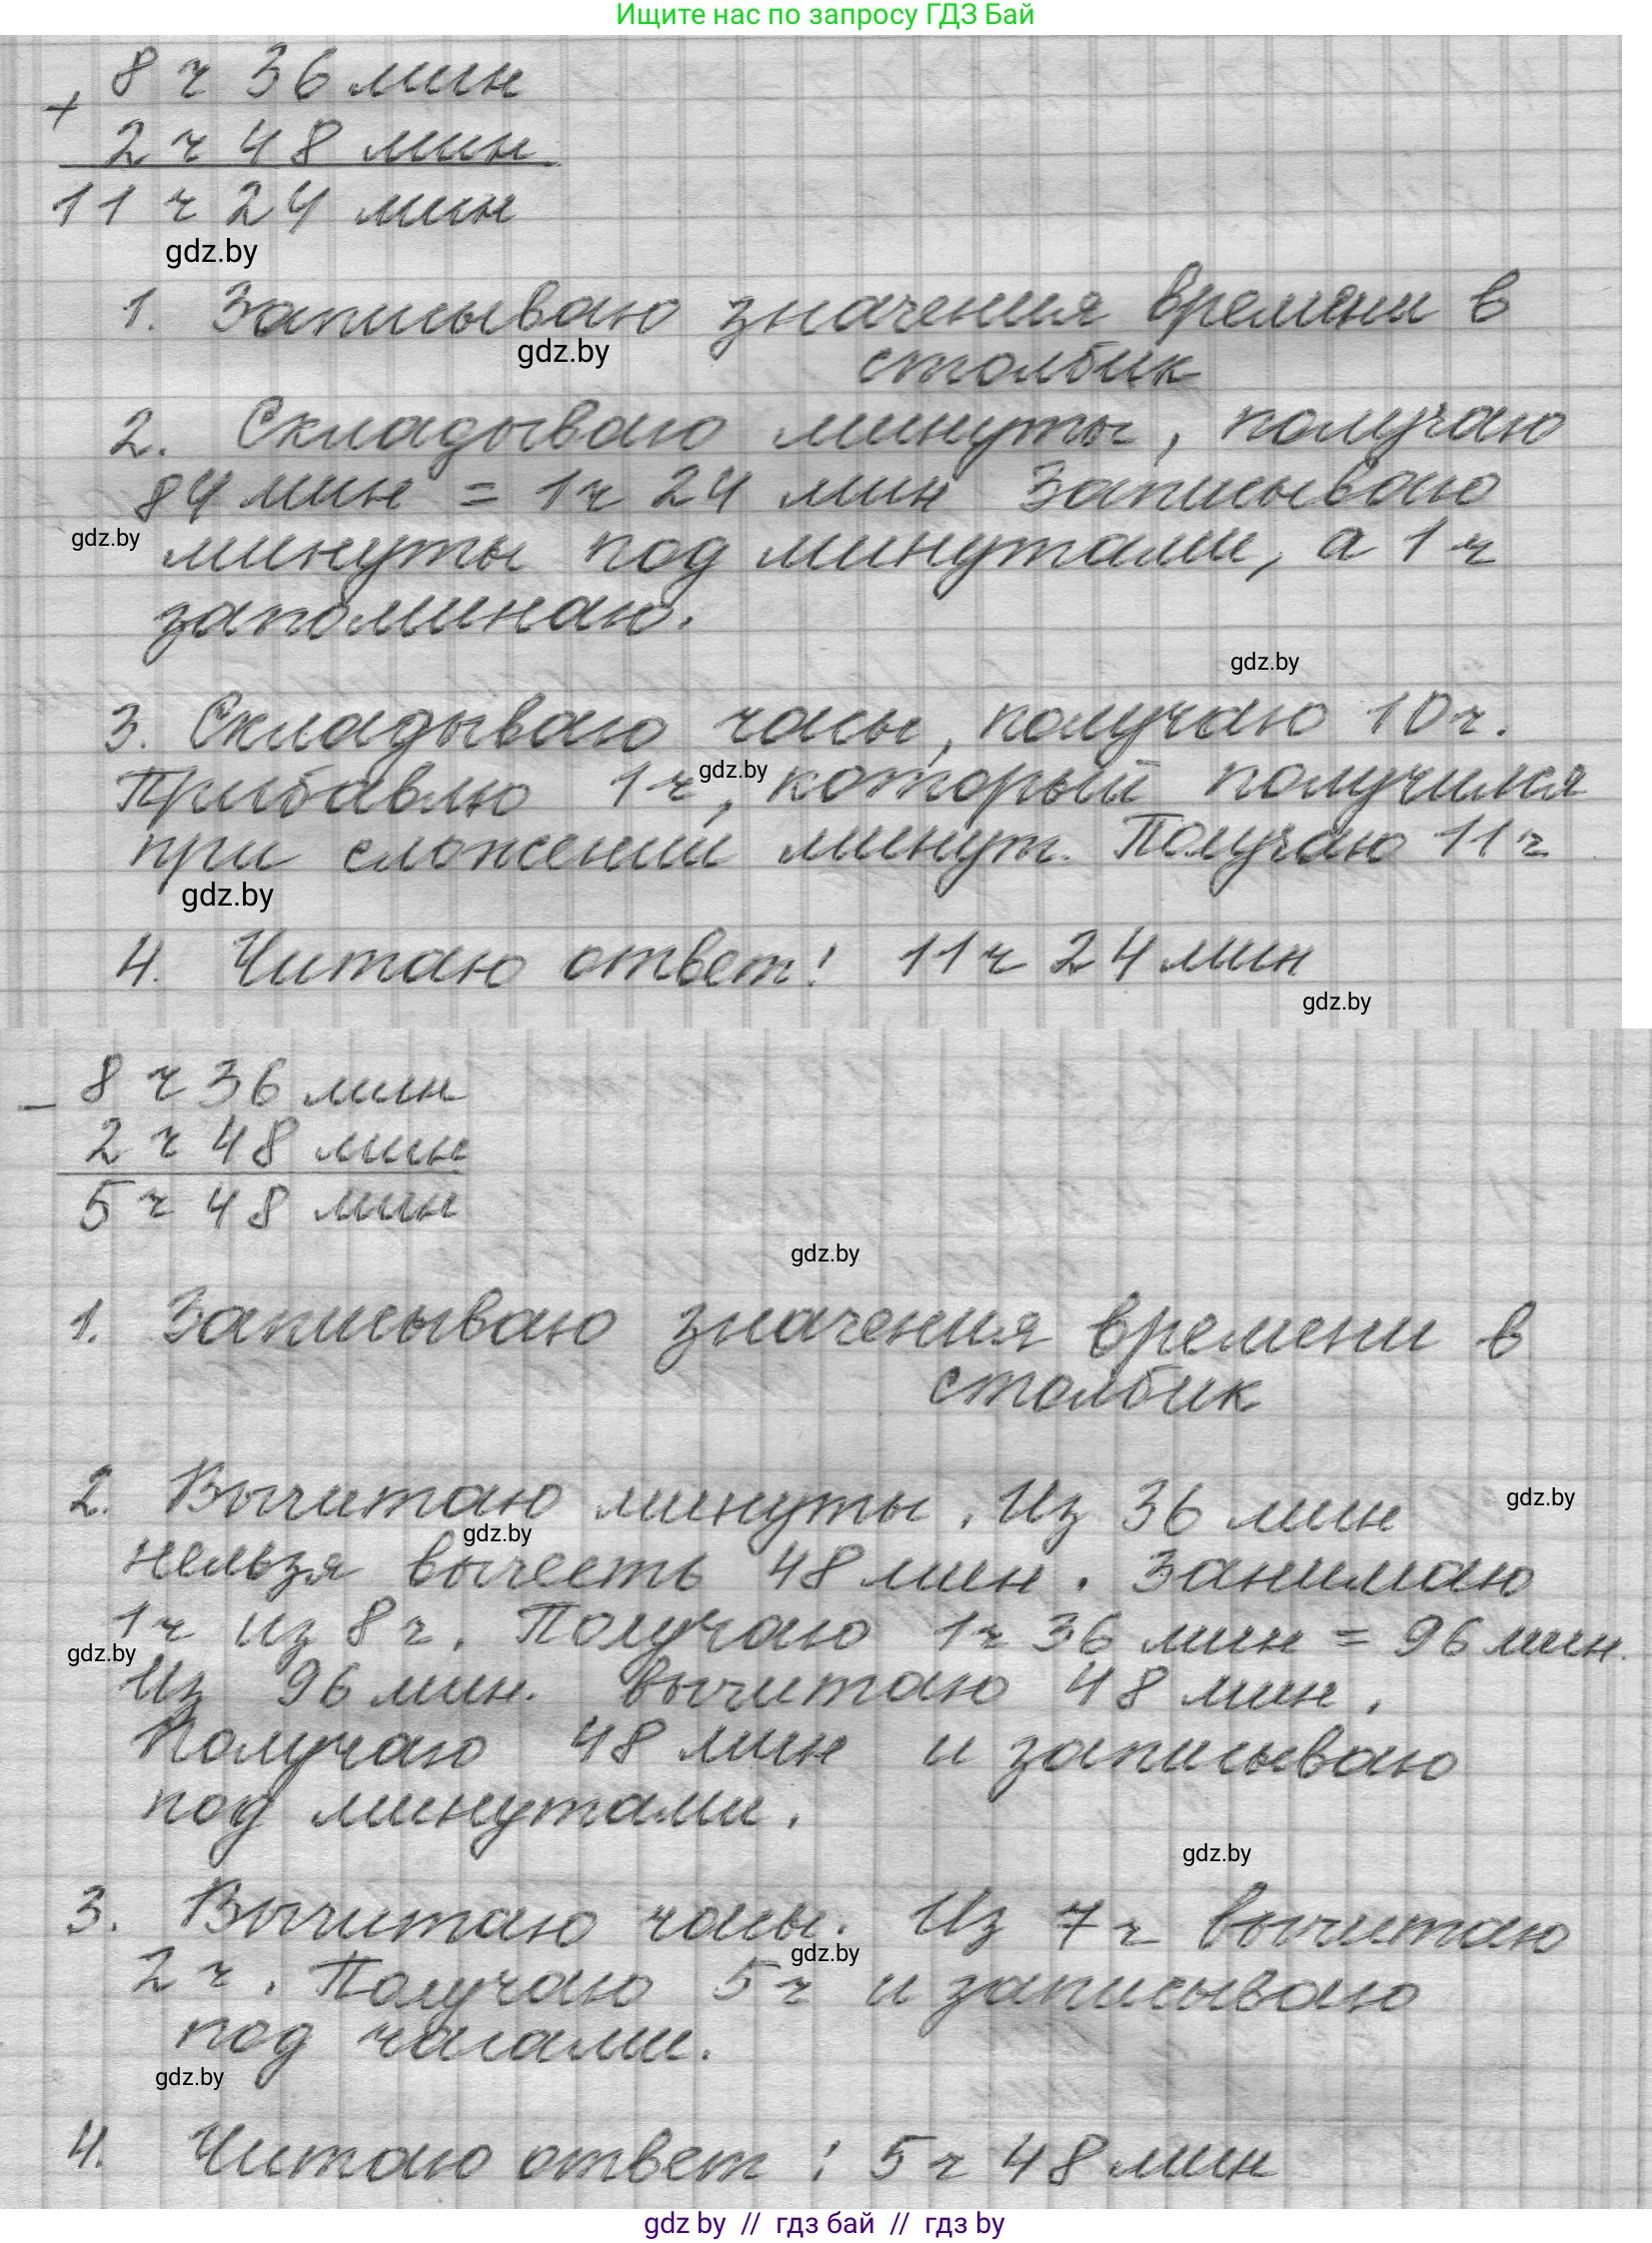 Ищите нас по запросу ГДЗ Бай
8 ч 36 мин
+
2 ч 48 мин
11 ч 24 мин
gdz.by
1. Записываю значения времени в
gdz.by
столбик
2. Складываю минуты, получаю
84 мин = 1ч 24 мин Записываю
gdz.by
минуты под минутами, а 1 ч
запоминаю.
gdz.by
3. Складываю часы, получаю 10ч.
gdz.by
Прибавлю 1ч, который получился
при сложении минут. Получаю 11ч
gdz.by
4. Читаю ответ: 11ч 24 мин
gdz.by
- 8 ч 36 мин
2 ч 48 мин
5 ч 48 мин
gdz.by
1. Записываю значения времени в
столбик
2. Вычитаю минуты. Из 36 мин
gdz.by
gdz.by
нельзя вычесть 48 мин. Занимаю
1ч из 8ч. Получаю 1ч 36 мин = 96 мин.
gdz.by
Из 96 мин. вычитаю 48 мин.
Получаю 48 мин и записываю
под минутами.
gdz.by
3. Вычитаю часы. Из 7ч вычитаю
gdz.by
2ч. Получаю 5ч и записываю
под часами.
gdz.by
4. Читаю ответ: 5ч 48 мин
gdz by // гдз бай // гдз by